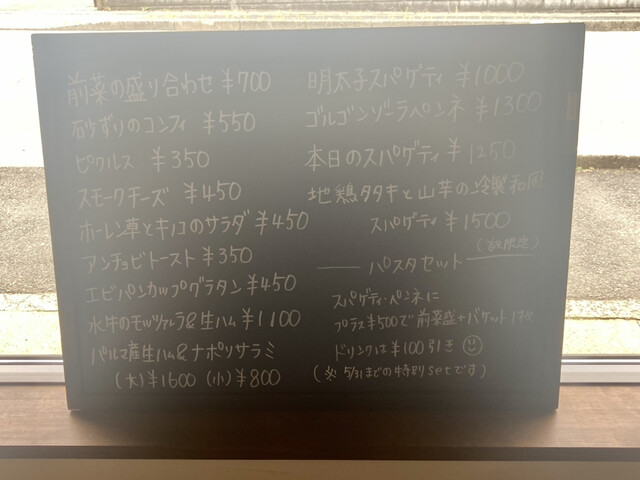 前菜の盛り合わせ ¥700
砂ずりのコンフィ ¥550
ピクルス ¥350
スモークチーズ ¥450
ホーレン草とキノコのサラダ ¥450
アンチョビトースト ¥350
エビパンカップグラタン ¥450
水牛のモッツァレラ&生ハム ¥1100
パルマ産生ハム&ナポリサラミ
(大)¥1600 (小)¥800
明太子スパゲティ ¥1000
ゴルゴンゾーラペンネ ¥1300
本日のスパゲティ ¥1250
地鶏タタキと山芋の冷製和風
スパゲティ ¥1500
(数限定)
パスタセット
スパゲティ・ペンネに
プラス¥500で前菜盛+バケット1枚
ドリンクは¥100引き
(※5/31までの特別setです)